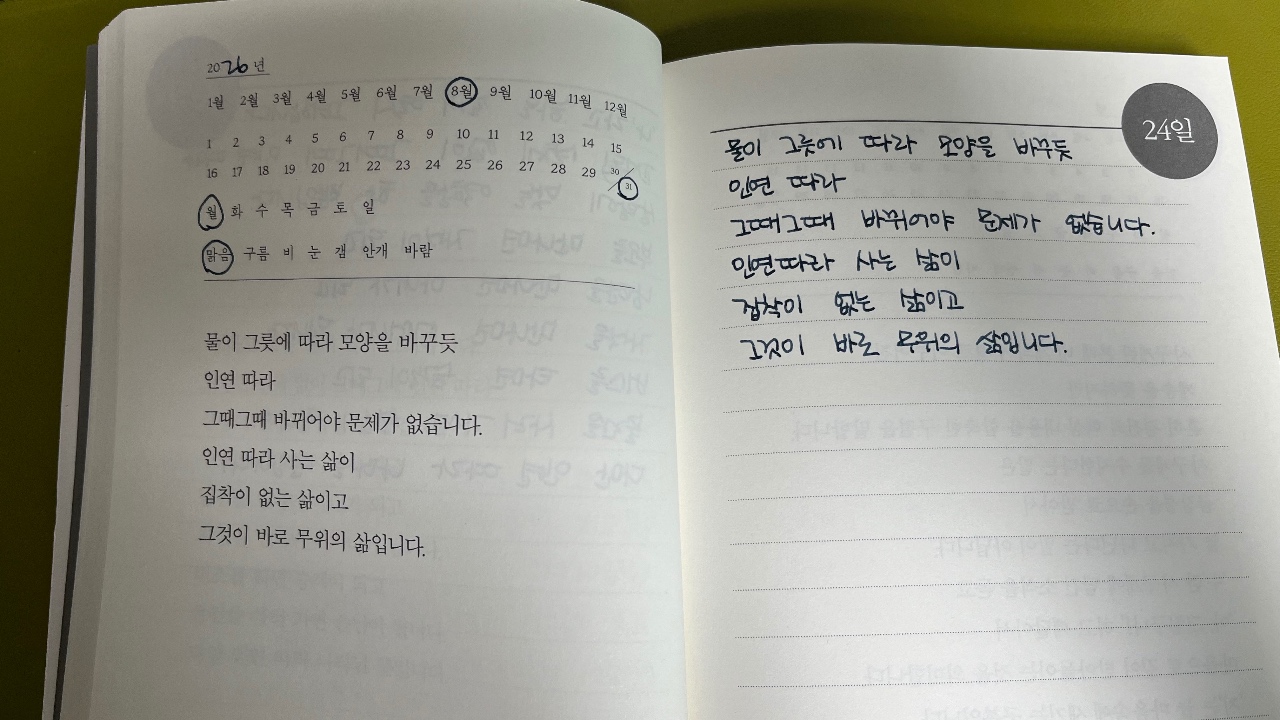 2026년
1월 2월 3월 4월 5월 6월 7월 8월 9월 10월 11월 12월
1 2 3 4 5 6 7 8 9 10 11 12 13 14 15
16 17 18 19 20 21 22 23 24 25 26 27 28 29 30/31
월 화 수 목 금 토 일
맑음 구름 비 눈 갬 안개 바람
물이 그릇에 따라 모양을 바꾸듯
인연 따라
그때그때 바뀌어야 문제가 없습니다.
인연 따라 사는 삶이
집착이 없는 삶이고
그것이 바로 무위의 삶입니다.
24일
물이 그릇에 따라 모양을 바꾸듯
인연 따라
그때그때 바뀌어야 문제가 없습니다.
인연따라 사는 삶이
집착이 없는 삶이고
그것이 바로 무위의 삶입니다.